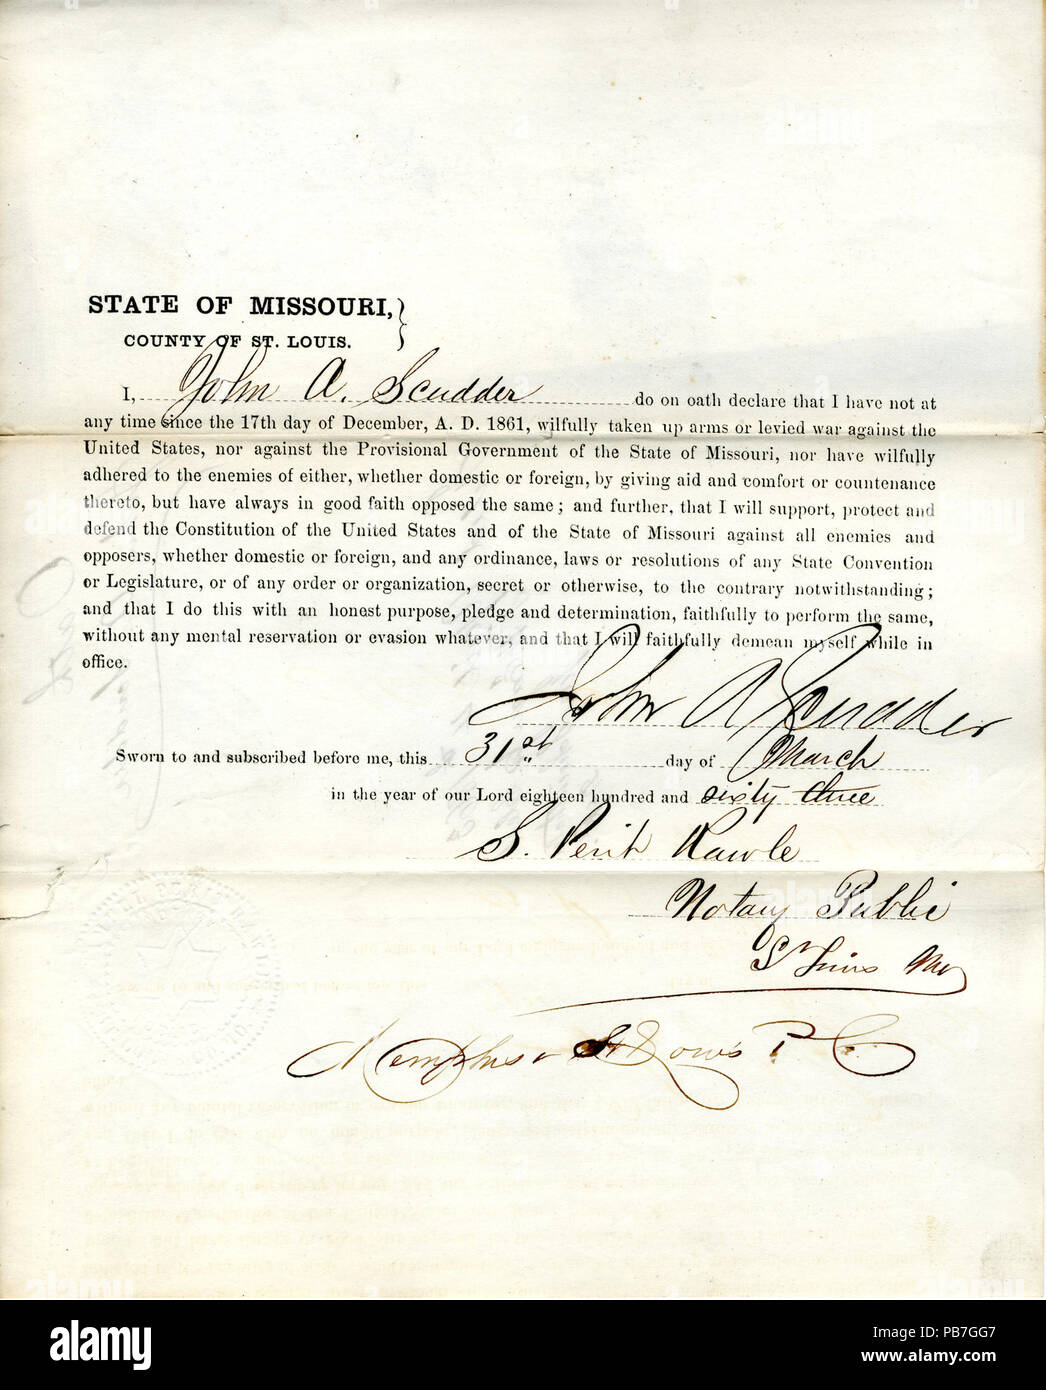 STATE OF MISSOURI,
COUNTY OF ST. LOUIS.
I, John A. Scudder do on oath declare that I have not at
any time since the 17th day of December, A. D. 1861, wilfully taken up arms or levied war against the
United States, nor against the Provisional Government of the State of Missouri, nor have wilfully
adhered to the enemies of either, whether domestic or foreign, by giving aid and comfort or countenance
thereto, but have always in good faith opposed the same; and further, that I will support, protect and
defend the Constitution of the United States and of the State of Missouri against all enemies and
opposers, whether domestic or foreign, and any ordinance, laws or resolutions of any State Convention
or Legislature, or of any order or organization, secret or otherwise, to the contrary notwithstanding;
and that I do this with an honest purpose, pledge and determination, faithfully to perform the same,
without any mental reservation or evasion whatever, and that I will faithfully demean myself while in
office.
John A Scudder
Sworn to and subscribed before me, this 31st day of March
in the year of our Lord eighteen hundred and sixty three
S. Perit Rawle
Notary Public
St Louis Mo
Memphis & St Louis P C
alamy
PB7GG7
www.alamy.com